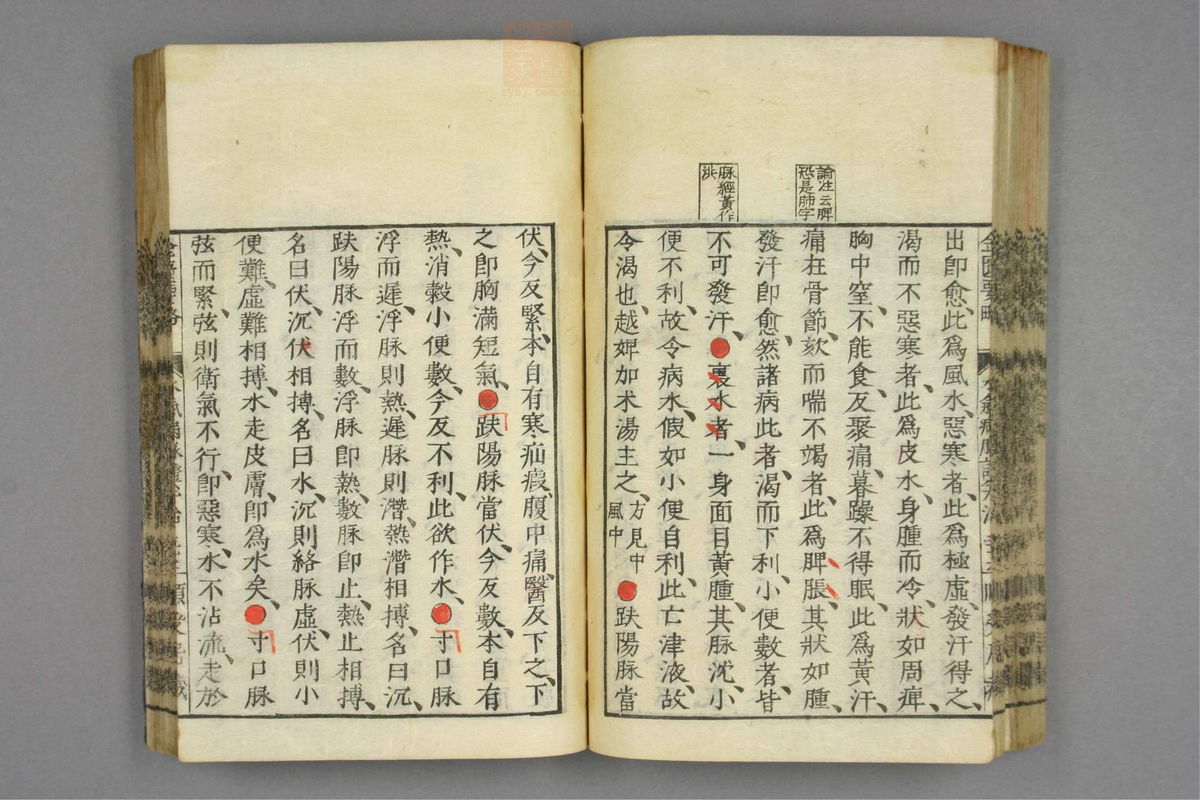 論注云脾
恐是肺字
脉經黃作
洪
出即愈、此爲風水、惡寒者、此爲極虛、發汗得之、
渴而不惡寒者、此爲皮水、身腫而冷、狀如周痺、
胸中窒、不能食、反聚痛、暮躁不得眠、此爲黃汗、
痛在骨節、欬而喘不竭者、此爲脾脹、其狀如腫、
發汗即愈、然諸病此者、渴而下利、小便數者、皆
不可發汗、●裏水者、一身面目黃腫、其脉沈、小
便不利、故令病水、假如小便自利、此亡津液、故
令渴也、越婢加朮湯主之、方見中風中●趺陽脉當
伏、今反緊、本自有寒、疝瘕、腹中痛、醫反下之、下
之即胸滿短氣、●趺陽脉當伏、今反數、本自有
熱、消穀、小便數、今反不利、此欲作水、●寸口脉
浮而遲、浮脉則熱、遲脉則潛、熱潛相搏、名曰沉、
趺陽脉浮而數、浮脉即熱、數脉即止、熱止相搏、
名曰伏、沉伏相搏、名曰水、沉則絡脉虛、伏則小
便難、虛難相搏、水走皮膚、即爲水矣、●寸口脉
弦而緊、弦則衛氣不行、即惡寒、水不沾流、走於